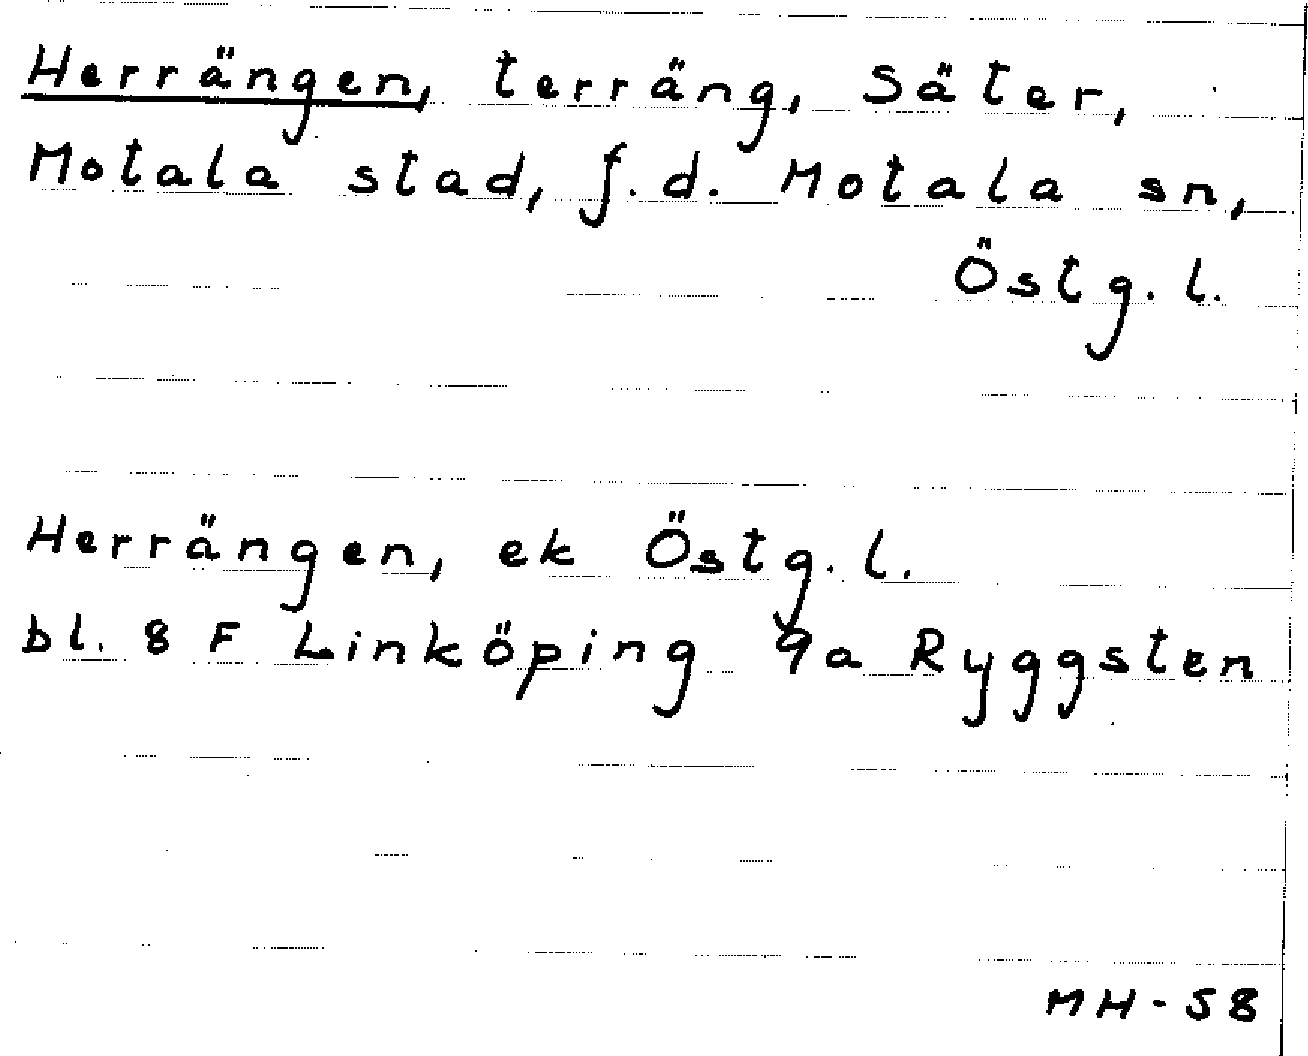 Herrängen, terräng, Säter,
Motala stad, f.d. Motala sn,
Östg.l.
Herrängen, ek Östg.l.
bl. 8 F Linköping 9a Ryggsten
MH-58